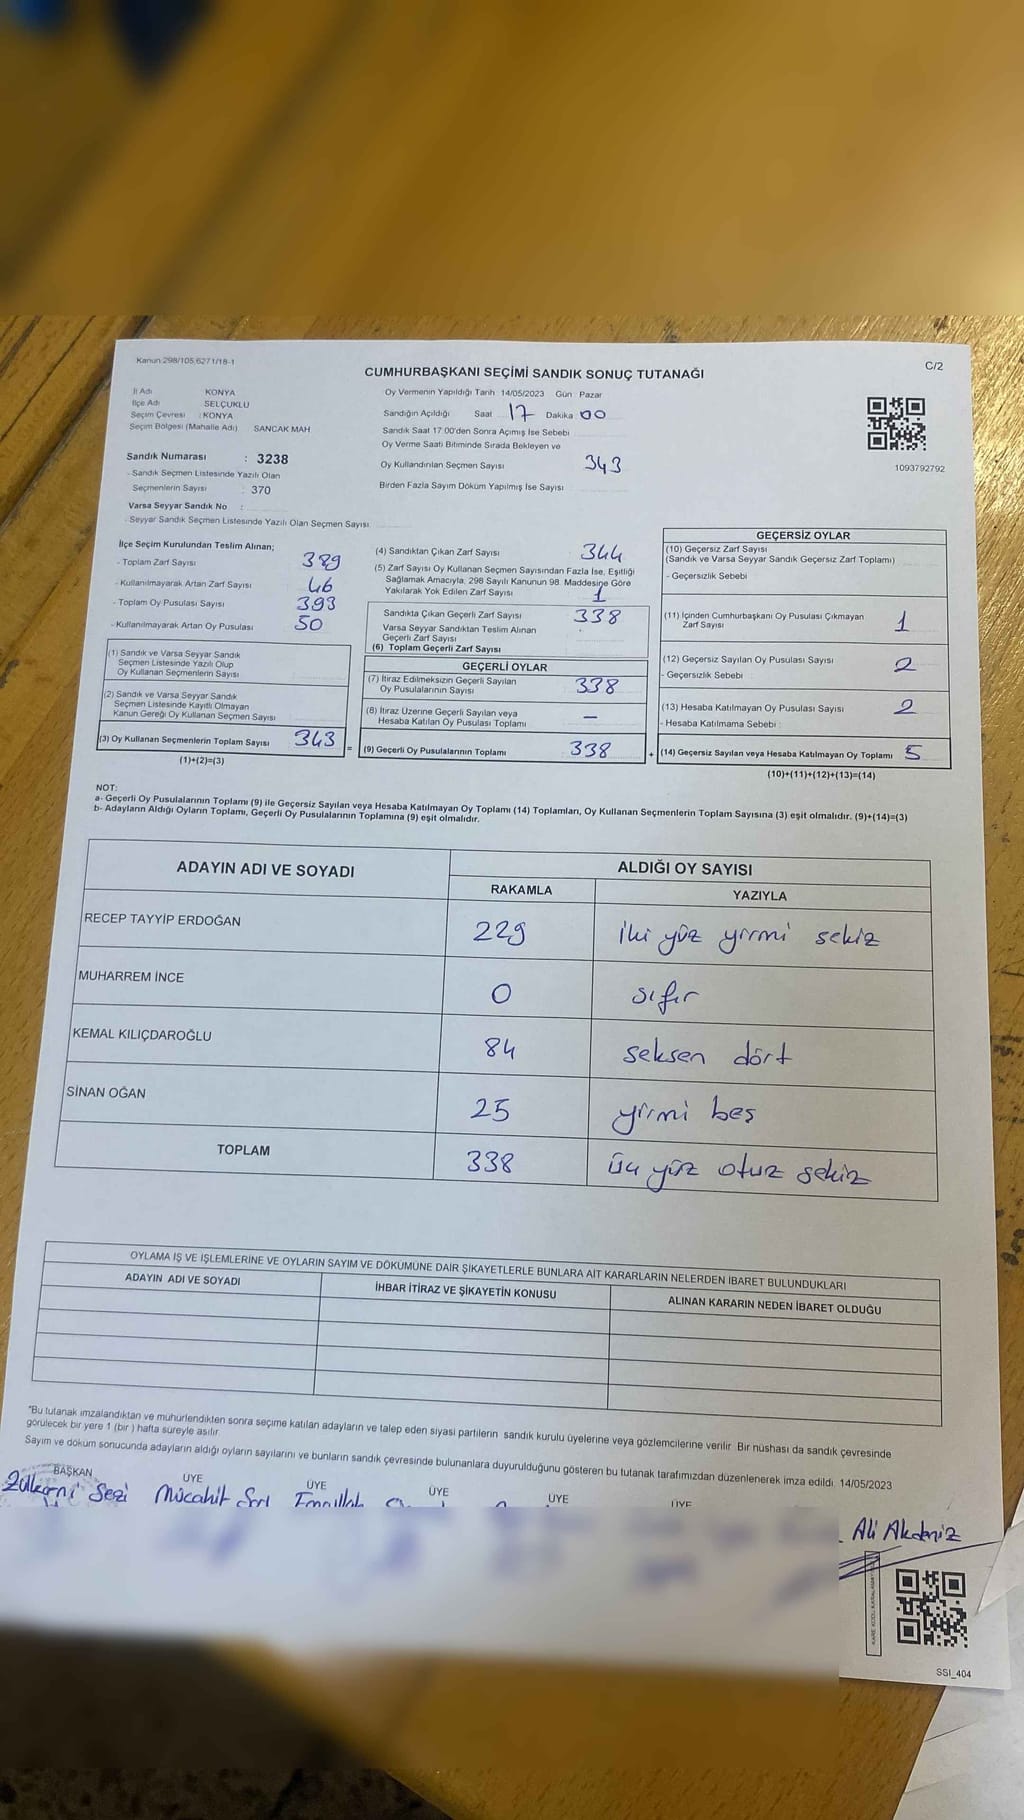 Kanun 298/105,6271/18-1
C/2
CUMHURBAŞKANI SEÇİMİ SANDIK SONUÇ TUTANAĞI
İl Adı KONYA
İlçe Adı SELÇUKLU
Seçim Çevresi : KONYA
Seçim Bölgesi (Mahalle Adı) SANCAK MAH
Sandık Numarası : 3238
- Sandık Seçmen Listesinde Yazılı Olan
Seçmenlerin Sayısı : 370
Varsa Seyyar Sandık No :
- Seyyar Sandık Seçmen Listesinde Yazılı Olan Seçmen Sayısı
Oy Vermenin Yapıldığı Tarih 14/05/2023 Gün Pazar
Sandığın Açıldığı Saat 17 Dakika 00
Sandık Saat 17:00'den Sonra Açımış İse Sebebi
Oy Verme Saati Bitiminde Sırada Bekleyen ve
Oy Kullandırılan Seçmen Sayısı 343
Birden Fazla Sayım Döküm Yapılmış İse Sayısı
1093792792
İlçe Seçim Kurulundan Teslim Alınan;
- Toplam Zarf Sayısı 389
- Kullanılmayarak Artan Zarf Sayısı 46
- Toplam Oy Pusulası Sayısı 393
- Kullanılmayarak Artan Oy Pusulası 50
(1) Sandık ve Varsa Seyyar Sandık
Seçmen Listesinde Yazılı Olup
Oy Kullanan Seçmenlerin Sayısı
(2) Sandık ve Varsa Seyyar Sandık
Seçmen Listesinde Kayıtlı Olmayan
Kanun Gereği Oy Kullanan Seçmen Sayısı
(3) Oy Kullanan Seçmenlerin Toplam Sayısı 343
(1)+(2)=(3)
(4) Sandıktan Çıkan Zarf Sayısı 344
(5) Zarf Sayısı Oy Kullanan Seçmen Sayısından Fazla İse, Eşitliği
Sağlamak Amacıyla, 298 Sayılı Kanunun 98. Maddesine Göre
Yakılarak Yok Edilen Zarf Sayısı 1
Sandıkta Çıkan Geçerli Zarf Sayısı 338
Varsa Seyyar Sandıktan Teslim Alınan
Geçerli Zarf Sayısı
(6) Toplam Geçerli Zarf Sayısı
GEÇERLİ OYLAR
(7) İtiraz Edilmeksizin Geçerli Sayılan
Oy Pusulalarının Sayısı 338
(8) İtiraz Üzerine Geçerli Sayılan veya
Hesaba Katılan Oy Pusulası Toplamı –
= (9) Geçerli Oy Pusulalarının Toplamı 338
GEÇERSİZ OYLAR
(10) Geçersiz Zarf Sayısı
(Sandık ve Varsa Seyyar Sandık Geçersiz Zarf Toplamı)
- Geçersizlik Sebebi
(11) İçinden Cumhurbaşkanı Oy Pusulası Çıkmayan
Zarf Sayısı 1
(12) Geçersiz Sayılan Oy Pusulası Sayısı 2
- Geçersizlik Sebebi
(13) Hesaba Katılmayan Oy Pusulası Sayısı 2
- Hesaba Katılmama Sebebi :
+ (14) Geçersiz Sayılan veya Hesaba Katılmayan Oy Toplamı 5
(10)+(11)+(12)+(13)=(14)
NOT:
a- Geçerli Oy Pusulalarının Toplamı (9) ile Geçersiz Sayılan veya Hesaba Katılmayan Oy Toplamı (14) Toplamları, Oy Kullanan Seçmenlerin Toplam Sayısına (3) eşit olmalıdır. (9)+(14)=(3)
b- Adayların Aldığı Oyların Toplamı, Geçerli Oy Pusulalarının Toplamına (9) eşit olmalıdır.
ADAYIN ADI VE SOYADI ALDIĞI OY SAYISI
RAKAMLA YAZIYLA
RECEP TAYYİP ERDOĞAN 229 iki yüz yirmi sekiz
MUHARREM İNCE 0 sıfır
KEMAL KILIÇDAROĞLU 84 seksen dört
SİNAN OĞAN 25 yirmi beş
TOPLAM 338 üç yüz otuz sekiz
OYLAMA İŞ VE İŞLEMLERİNE VE OYLARIN SAYIM VE DÖKÜMÜNE DAİR ŞİKAYETLERLE BUNLARA AİT KARARLARIN NELERDEN İBARET BULUNDUKLARI
ADAYIN ADI VE SOYADI İHBAR İTİRAZ VE ŞİKAYETİN KONUSU ALINAN KARARIN NEDEN İBARET OLDUĞU
*Bu tutanak imzalandıktan ve mühürlendikten sonra seçime katılan adayların ve talep eden siyasi partilerin sandık kurulu üyelerine veya gözlemcilerine verilir Bir nüshası da sandık çevresinde
görülecek bir yere 1 (bir ) hafta süreyle asılır.
Sayım ve döküm sonucunda adayların aldığı oyların sayılarını ve bunların sandık çevresinde bulunanlara duyurulduğunu gösteren bu tutanak tarafımızdan düzenlenerek imza edildi. 14/05/2023
BAŞKAN ÜYE ÜYE ÜYE ÜYE ÜYE
Mücahit
Ali Akdeniz
SSI_404